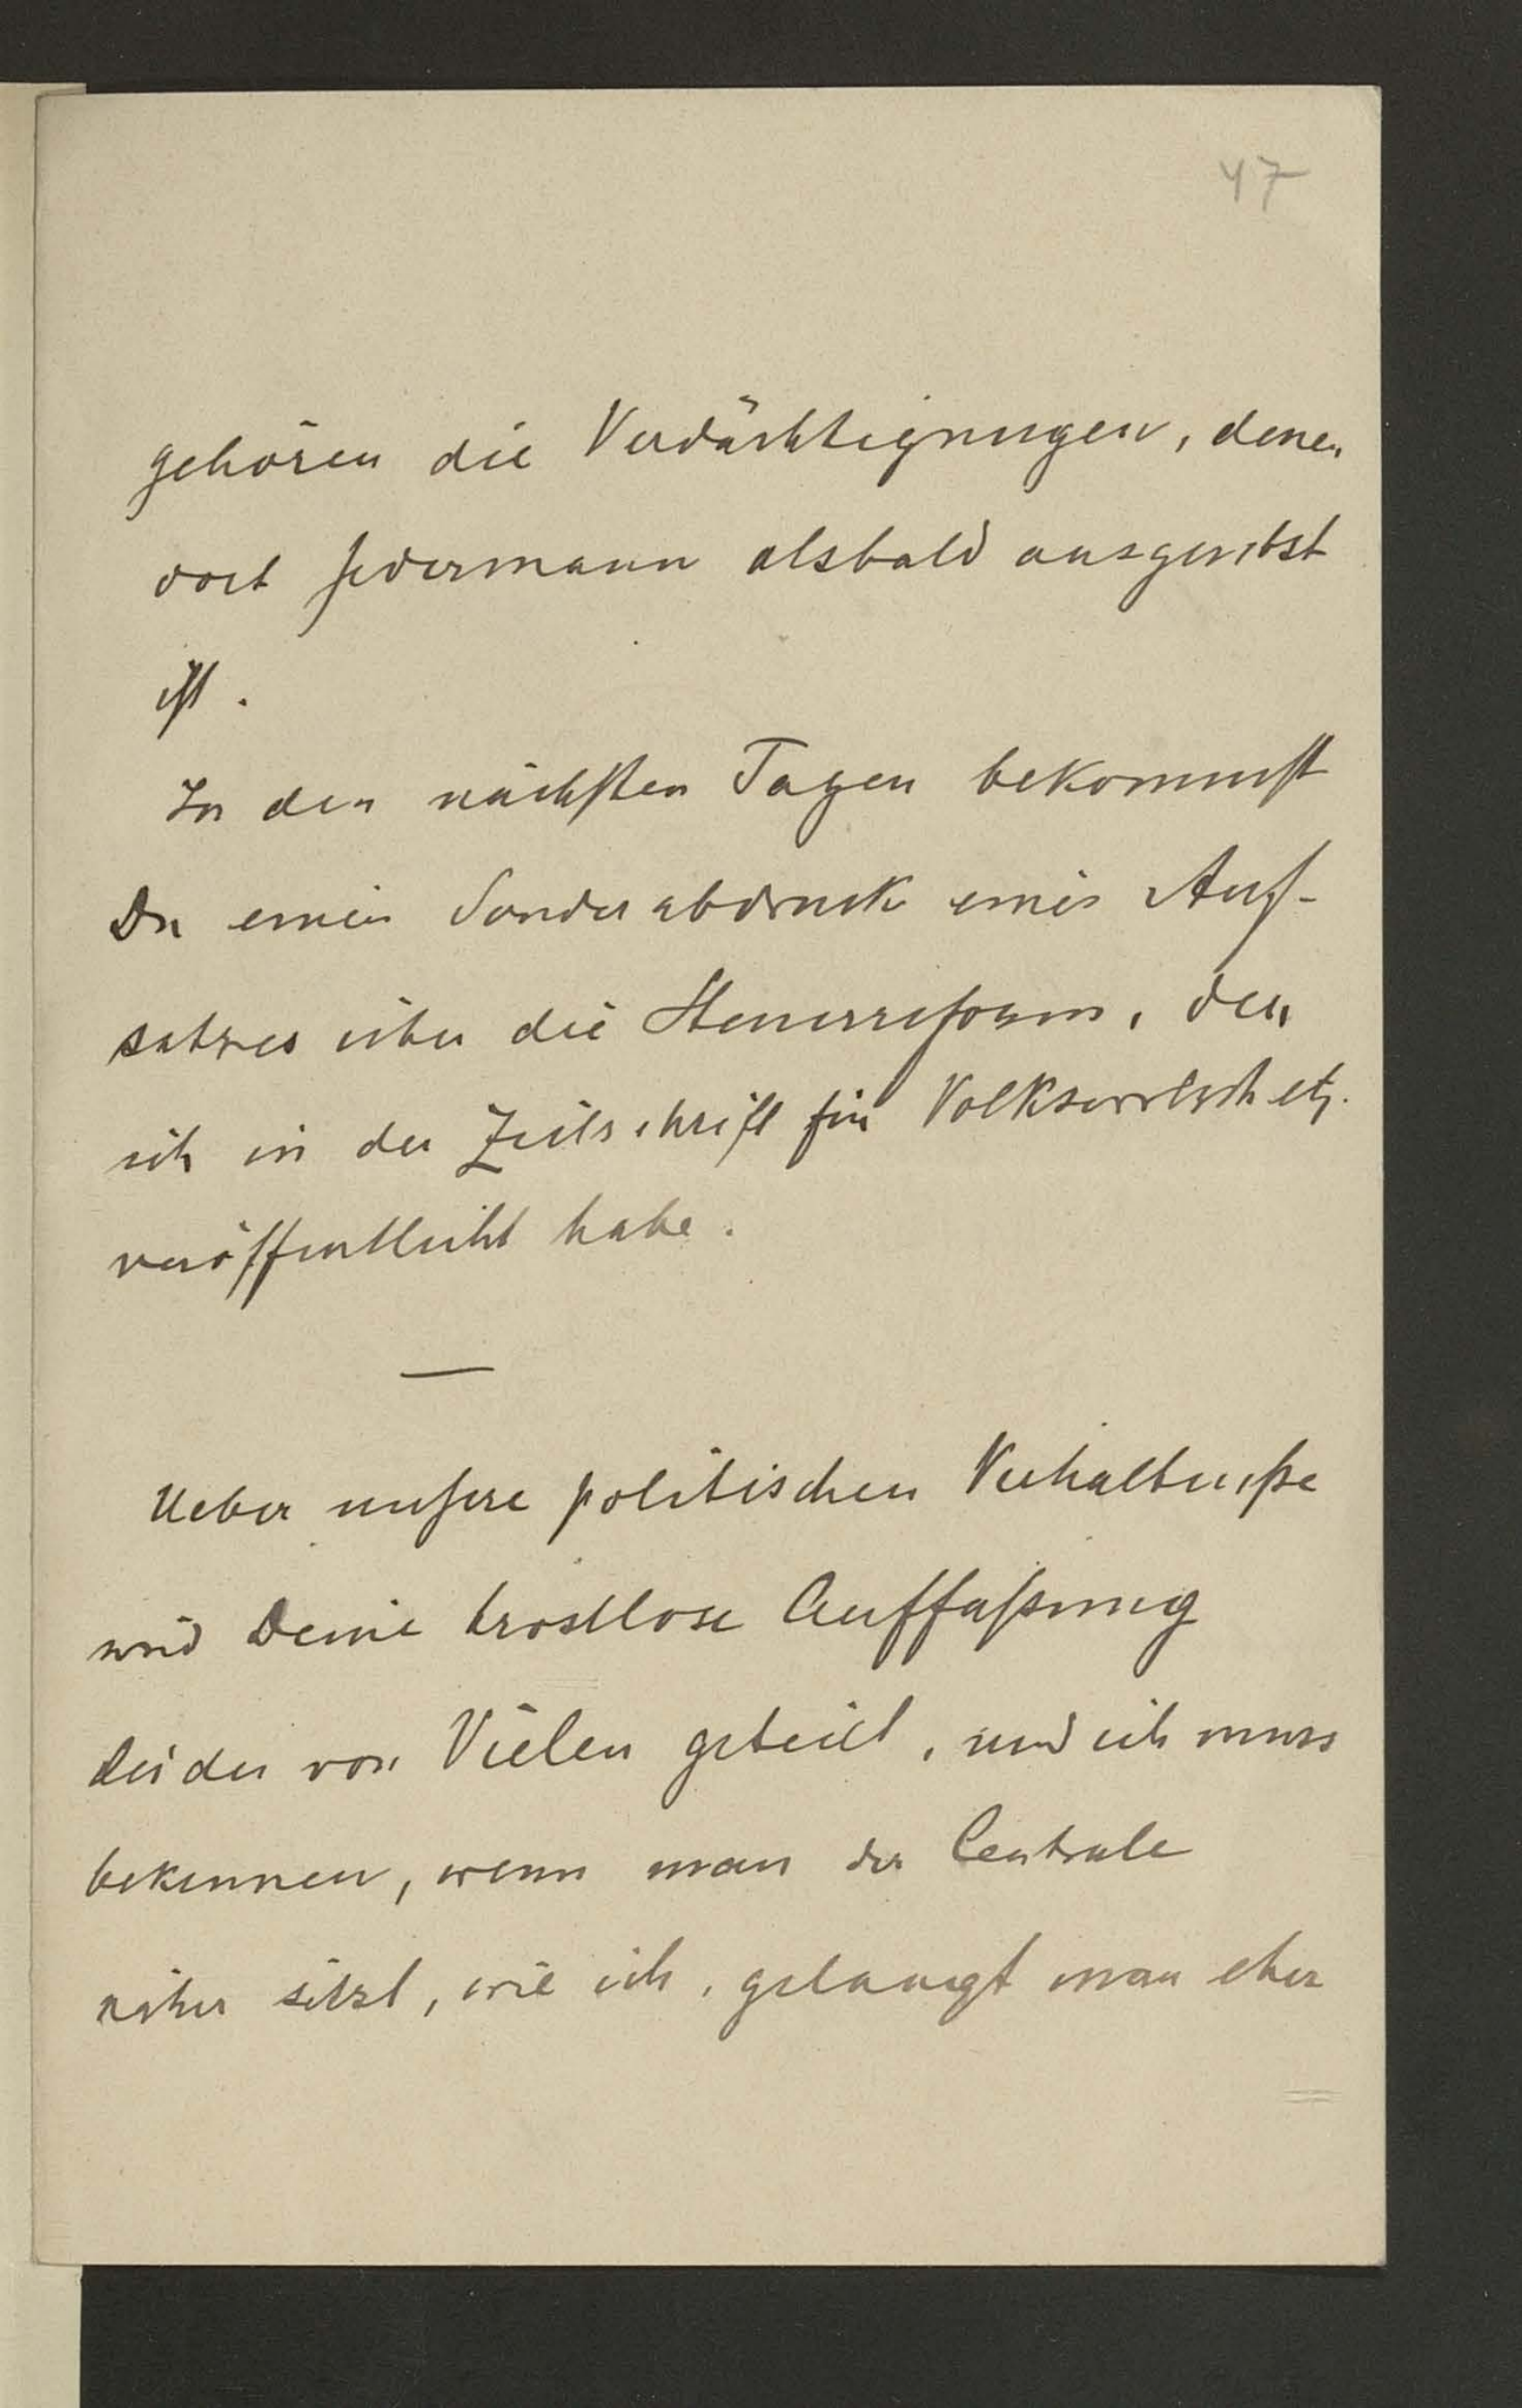 47
gehören die Verdächtigungen, denen
dort jedermann alsbald ausgesetzt
ist.
In den nächsten Tagen bekommst
Du einen Sonderabdruck eines Auf-
satzes über die Steuerreform, den
ich in der Zeitschrift für Volkswirtsch etz.
veröffentlicht habe.
—
Ueber unsere politischen Verhältniße
wird Deine trostlose Auffaßung
leider von Vielen geteilt, und ich muss
bekennen, wenn man der Centrale
näher sitzt, wie ich, gelangt man eher